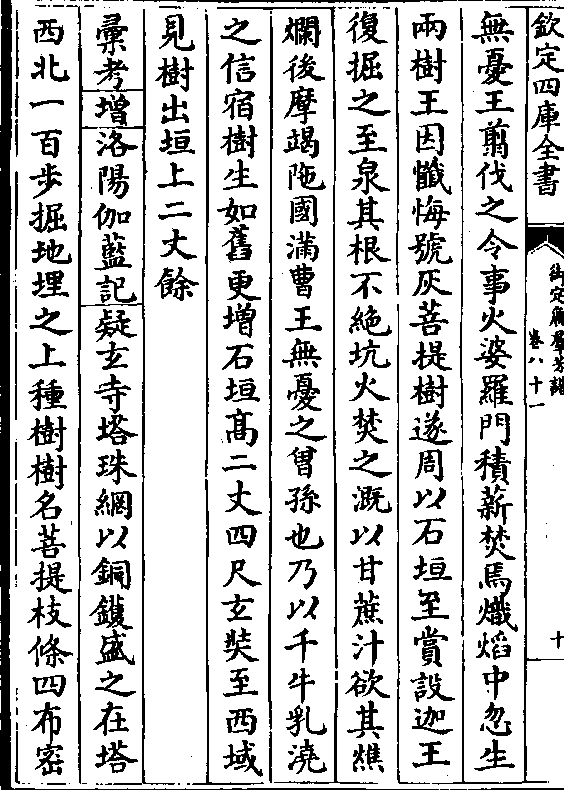 欽定四庫全書
御定廣羣芳譜
卷八十一
十
無憂王翦伐之令事火婆羅門積薪焚焉熾熖中忽生
兩樹王因懺悔號灰菩提樹遂周以石垣至賞設迦王
復掘之至泉其根不絶坑火焚之溉以甘蔗汁欲其燋
爛後摩竭陁國滿曹王無憂之曾孫也乃以千牛乳澆
之信宿樹生如舊更增石垣髙二丈四尺玄奘至西域
見樹出垣上二丈餘
彚考增洛陽伽藍記疑玄寺塔珠網以銅鑊盛之在塔
西北一百步掘地埋之上種樹樹名菩提枝條四布宻